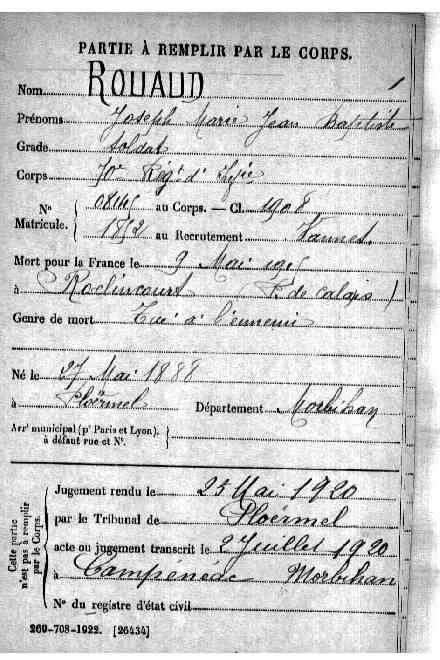 PARTIE À REMPLIR PAR LE CORPS.
Nom ROUAUD
1
Prénoms Joseph Marie Jean Baptiste
Grade soldat
Corps 70e Régt d'Inf
Nº 08145 au Corps. — Cl. 1908
Matricule. 1852 au Recrutement Vannes.
Mort pour la France le 9 Mai 1915
à Roclincourt (P. de calais)
Genre de mort Tué à l'ennemi
Né le 27 Mai 1888
à Ploërmel Département Morbihan
Arrt municipal (pr Paris et Lyon),
à défaut rue et Nº.
Cette partie n'est pas à remplir par le Corps.
Jugement rendu le 25 Mai 1920
par le Tribunal de Ploërmel
acte ou jugement transcrit le 2 Juillet 1920
à Campénéac Morbihan
Nº du registre d'état civil
269-708-1922. [26434]